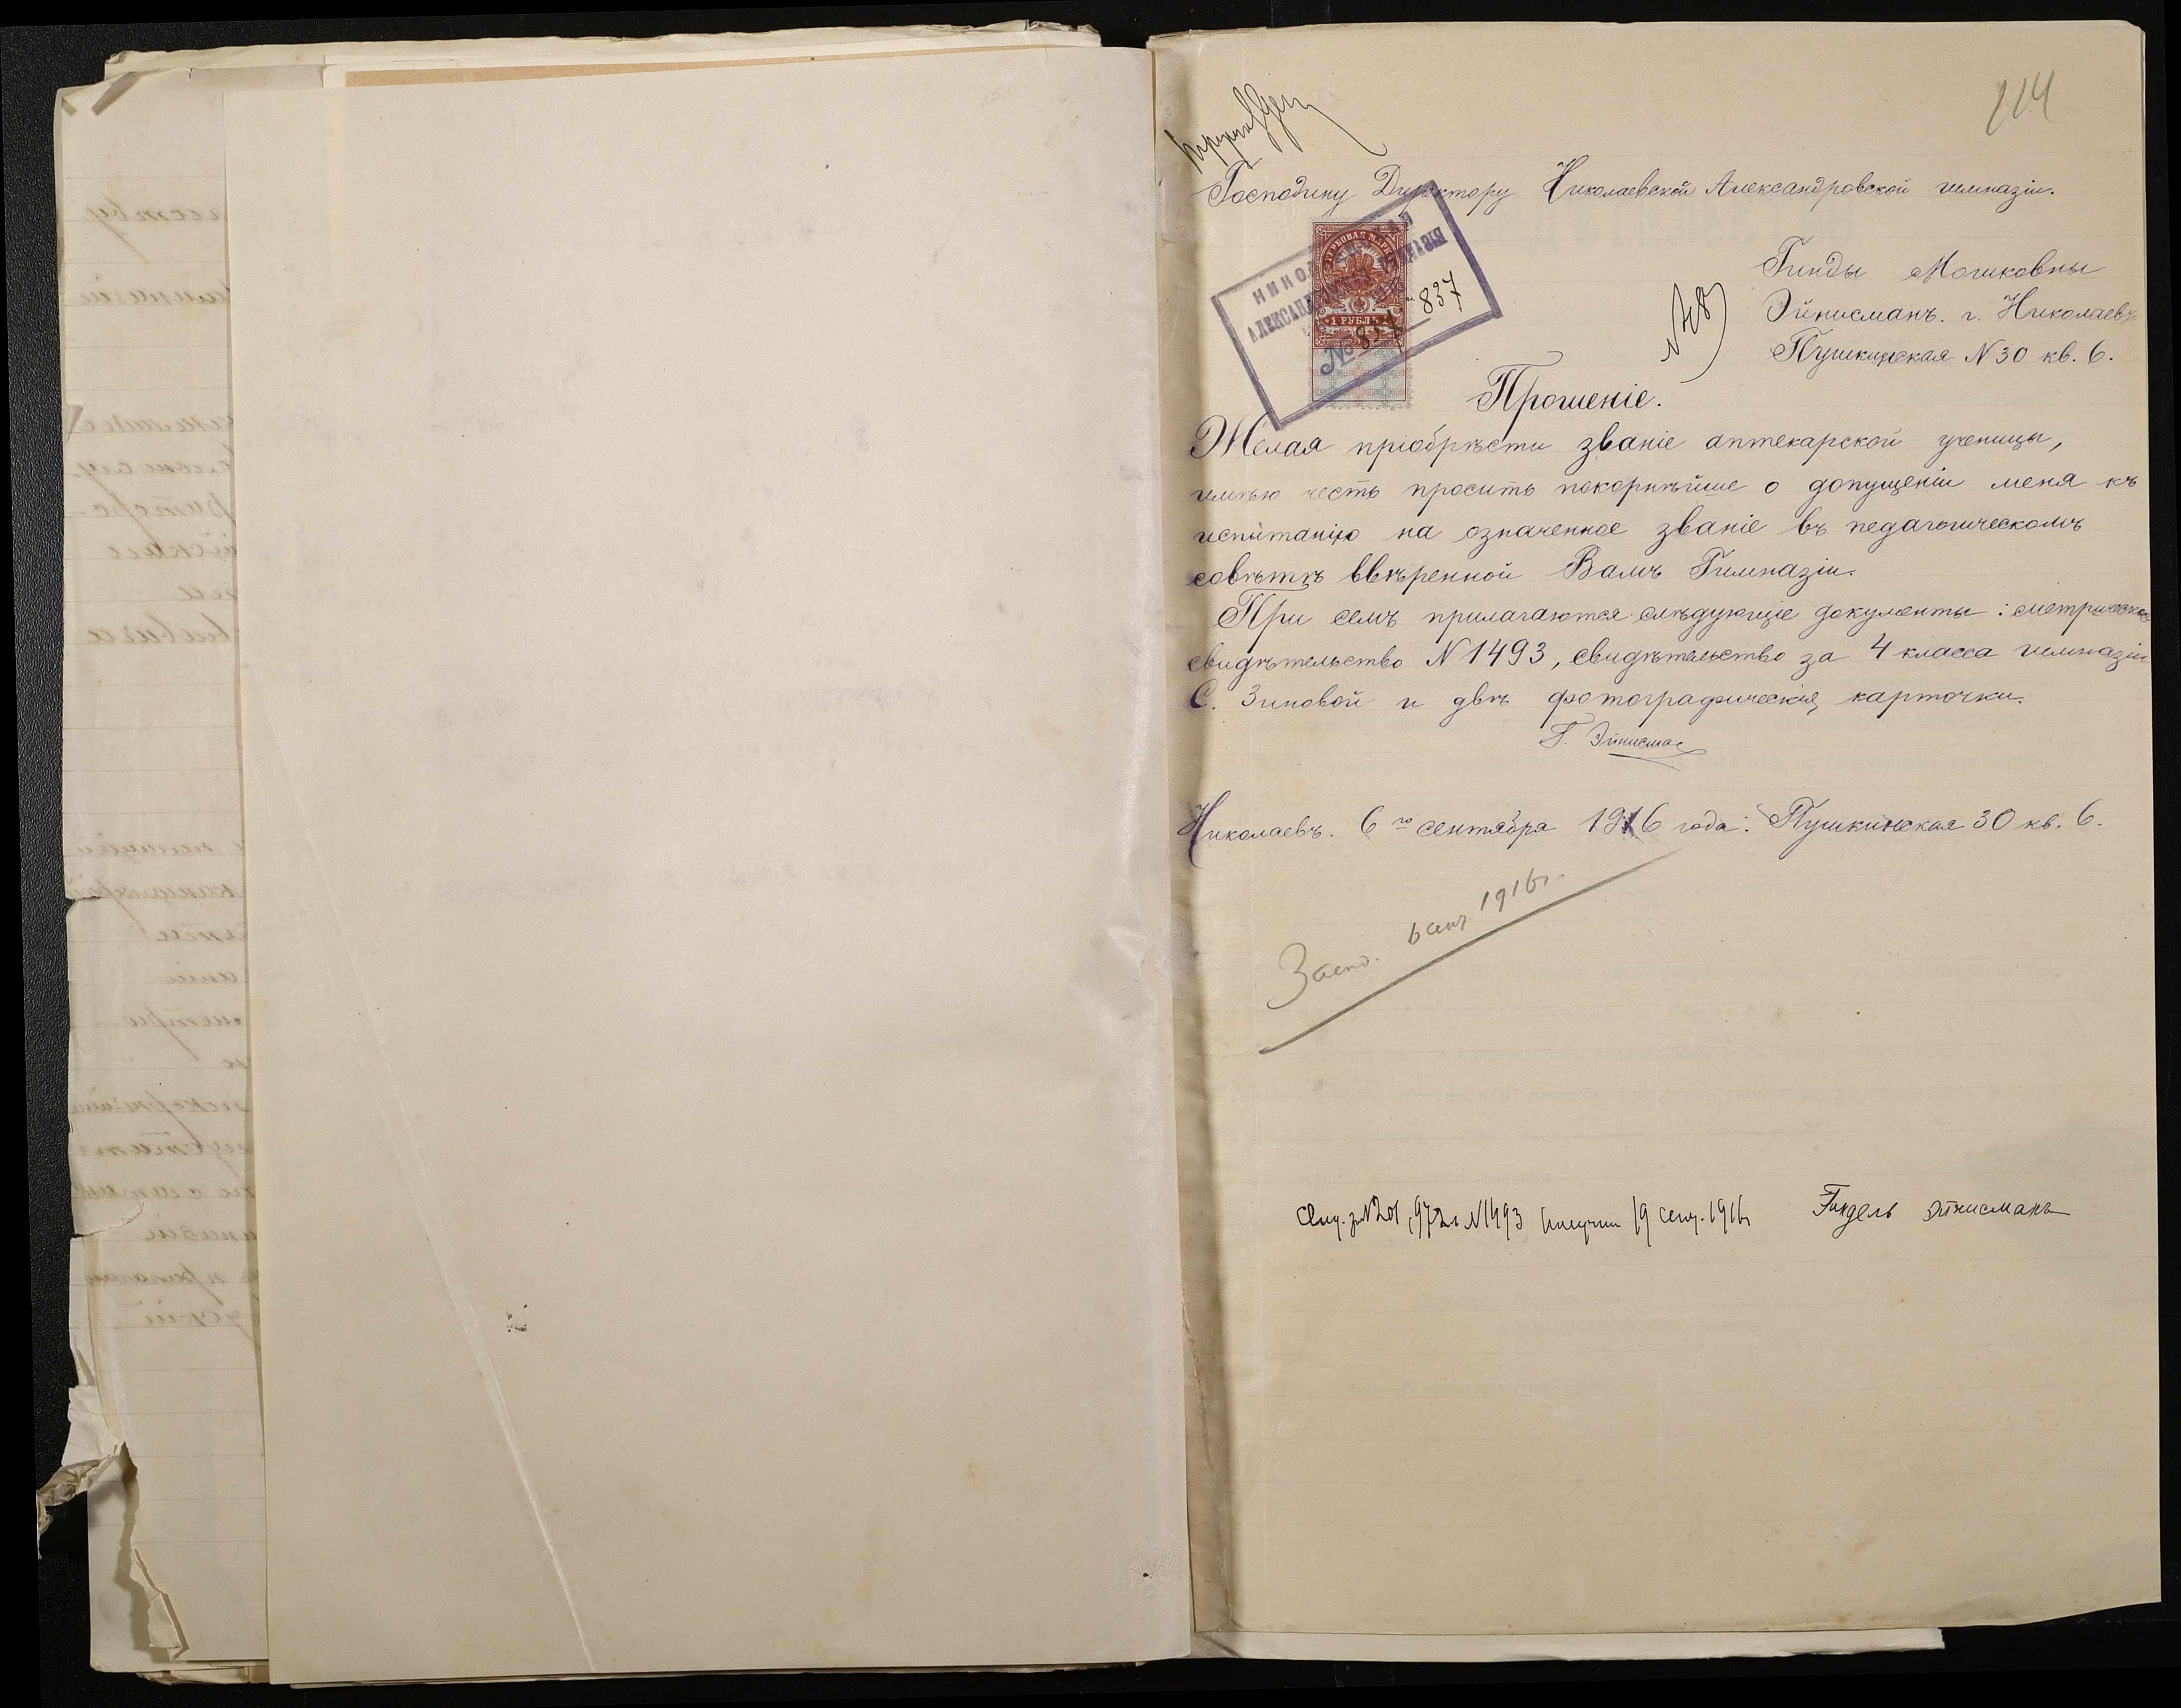 114
Господину Директору Николаевской Александровской гимназіи.
НИКОЛАЕВСКАЯ
АЛЕКСАНДРОВСКАЯ ГИМНАЗІЯ
ГЕРБОВАЯ МАРКА
1 РУБЛЬ
№ 837
837
Гинды Мошковны
Эйнисманъ. г. Николаевъ
Пушкинская N 30 кв. 6.
Прошеніе.
Желая пріобрѣсти званіе аптекарской ученицы,
имѣю честь просить покорнѣйше о допущеніи меня къ
испытанію на означенное званіе въ педагогическомъ
совѣтѣ ввѣренной Вамъ Гимназіи.
При семъ прилагаются слѣдующіе документы: метрическое
свидѣтельство N 1493, свидѣтельство за 4 класса гимназіи
С. Зиновой и двѣ фотографическія карточки.
Г. Эйнисман
Николаевъ. 6 го сентября 1916 года. Пушкинская 30 кв. 6.
6 сент 1916 г.
N 1493 получил 19 сент. 1916 г Гиндель Эйнисманъ